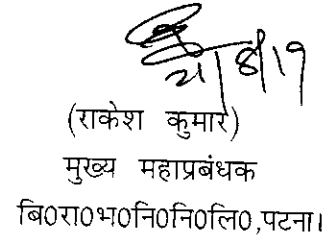 21/8/19
(राकेश कुमार)
मुख्य महाप्रबंधक
बि0रा0भ0नि0नि0लि0,पटना।